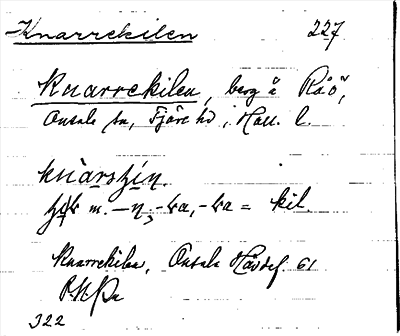 Knarrekilen 227
Knarrekilen, berg å Råö,
Onsala sn, Fjäre hd i Hall. l.
knàrsçín.
m. –n, -ka, -ka = kil
Knarrekilen, Onsala Hävdef. 61
322